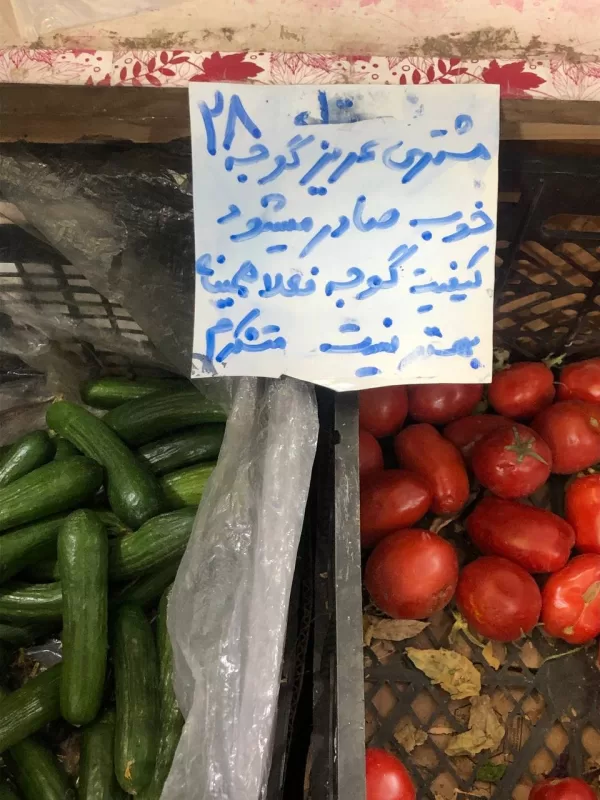 ۲۸
مشتری عزیز گوجه
خوب صادر میشود
کیفیت گوجه فعلا همینا
بهتر نیست متشکرم